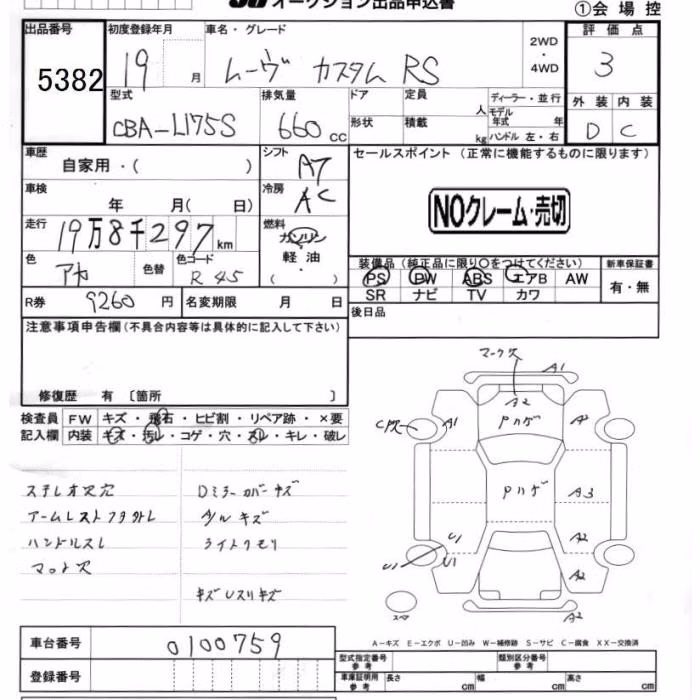 オークション出品申込書
①会場控
出品番号
初度登録年月
車名・グレード
2WD
・
4WD
評価点
5382
19 月
ムーヴ カスタム RS
3
型式
排気量
ドア
定員
人
ディーラー・並行
モデル年式 年
外装 内装
CBA-L175S
660 cc
形状
積載
kg
ハンドル 左・右
D C
車歴
自家用・( )
シフト
A7
セールスポイント (正常に機能するものに限ります)
車検
年 月( 日)
冷房
AC
NOクレーム・売切
走行
19万8千297km
燃料
ガソリン
軽油
( )
装備品 (純正品に限り○をつけてください)
新車保証書
色
アカ
色替
色コード
R 45
PS PW ABS エアB AW
SR ナビ TV カワ
有・無
R券 9260 円
名変期限 月 日
後日品
注意事項申告欄(不具合内容等は具体的に記入して下さい)
修復歴 有 〔箇所 〕
検査員 FW キズ・飛石・ヒビ割・リペア跡・×要
記入欄 内装 キズ・汚レ・コゲ・穴・スレ・キレ・破レ
ステレオ欠穴
Dミラーカバーキズ
ハンドルスレ
A/Wキズ
ライトクモリ
マット欠
マーク欠
A1
A2
Pハゲ
A1
A2
Pハゲ
A3
U1
U1
A2
A2
A2
車台番号 0100759
A-キズ E-エクボ U-凹み W-補修跡 S-サビ C-腐食 XX-交換済
登録番号
型式指定番号
参考
類別区分番号
参考
車庫証明用
参考
長さ cm
幅 cm
高さ cm